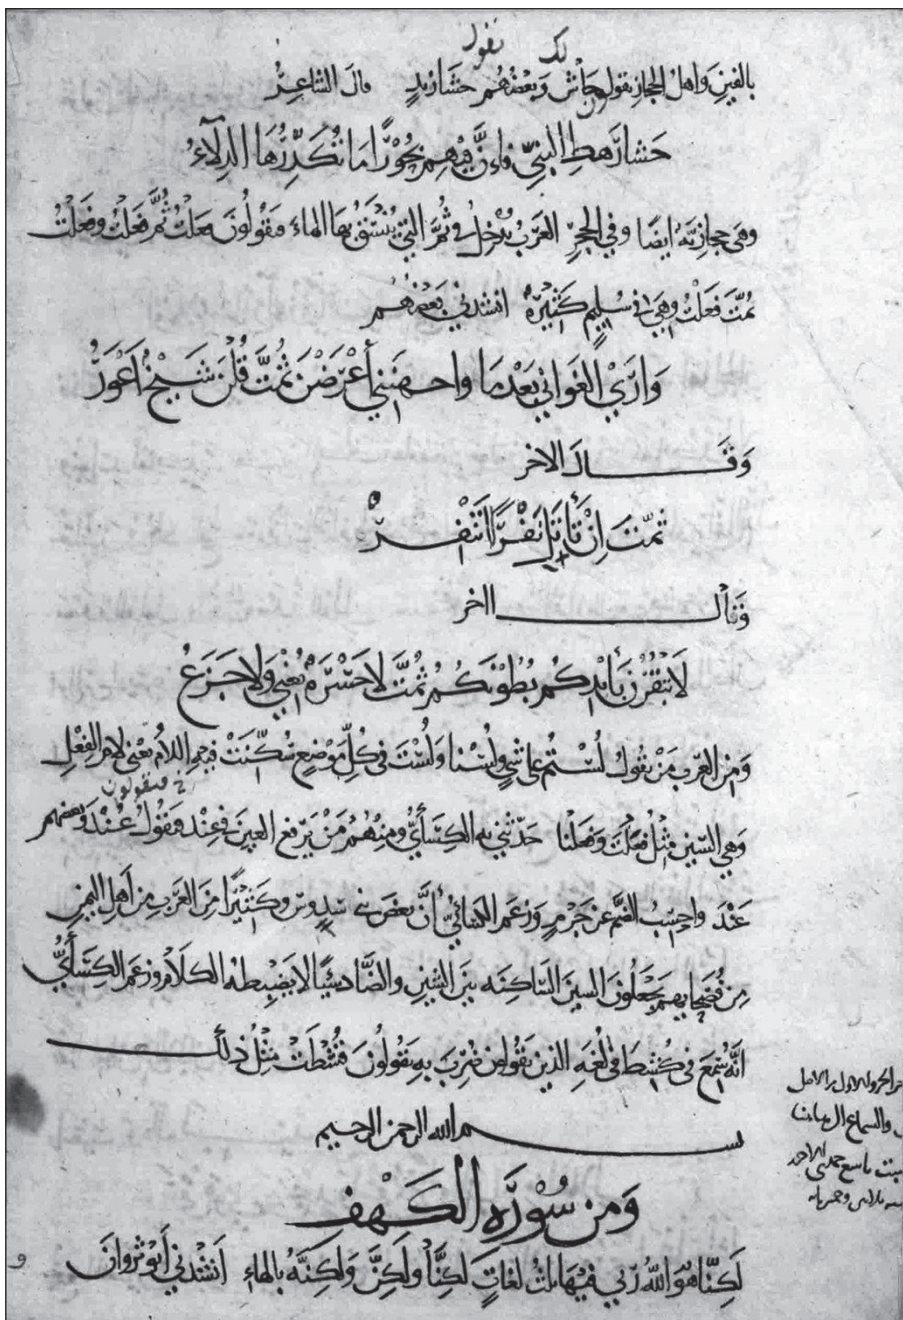 لك نقول
بالفين واهل الحجاز نقول حاش وبعضهم حشا زيد قال الشاعر
حَشا رَهطِ النبيِّ فإنَّ فيهم بُحُورًا مَا تُكَدِّرُهَا الدِلَآءُ
وهى حجازيّه ايضًا وفي الحجرِ العَرَب تُدخل في ثُمَّ التي يُنسَقُ بها الهاء فيقُولُونَ فعلتُ ثُمَّ فعَلتُ وفعلتُ
ثُمّتَ فعَلتُ وهى في سُليمٍ كَثِيرَة انشدني بَعضهُم
وَارَى الغَواني بَعْدمَا واجهنني أَعْرَضنَ ثُمّتَ قُلنَ شَيخٌ أَعوَرُ
وقَال الاخر
ثمّتَ اِنْ تنفرّ
وقال ااخر
بايديكُم بُطُونَكُم ثُمّتَ لا حَسْرَةٌ تُغنى ولا جَزَعُ
وَمِن العَرب مَنْ يقول لُسْتُم على شي ولُسْنا ولُسْتَ في كُلّ مَوْضعٍ سُكّنَتْ فيهِ اللامُ يَعنى لام الفعْلِ
فيقولون
وهى السّين مثْل فعَلت وفعلنا حَدّثني به الكِسَأيُّ ومِنهُمْ مَنْ يَرفع العين في عِند فيقول عُنْد وبعضهم
عَنْدَ واحسِبُ الضّم عن جَرمٍ وزعم الكسائيّ أنَّ بعضَ بني وكَثيرًا مِن العَرَب مِن اهل اليمن
مِن فُصَحايهم يَجعَلُونَ السين السّاكنه بينَ الشين والصَّاد شيًا لا يَضبطه الكلام وزعم الكِسَأيُّ
انّه سُمِعَ في كُشِطَ في لُغَه الذين يَقولون ضُرِبَ به يَقُولُونَ قُشْطَتْ مِثْلُ ذلك
بسم الله الرحمن الرحيم
وَمن سُورَةِ الكَهْف
لَكِنّا هُوَ اللّهُ رَبّي فيهَا ثلث لغاتٍ لكِنَّا ولَكِنَّ ولَكِنَّهُ بالهاءِ انشدني أبو ثروان
الجزو الاول من الاصل
والسماع